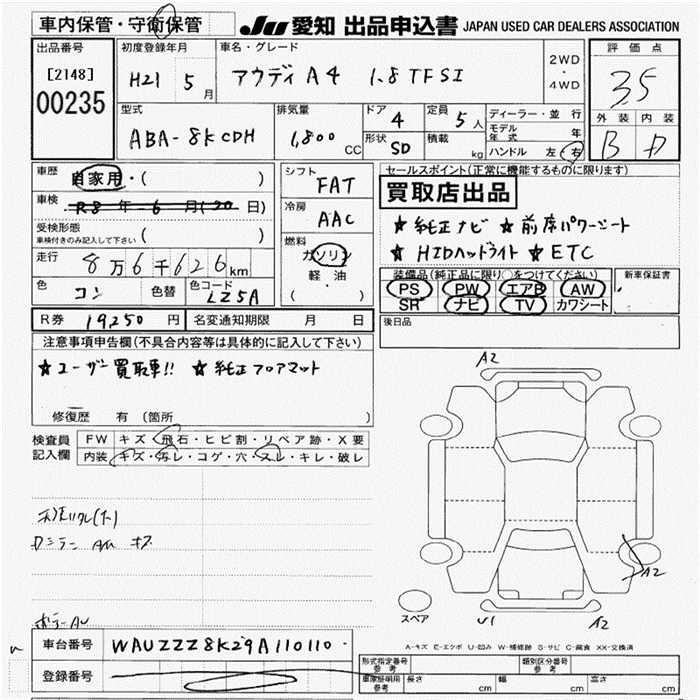 車内保管・守衛保管
JU 愛知 出品申込書 JAPAN USED CAR DEALERS ASSOCIATION
出品番号
[2148]
00235
初度登録年月
H21 5月
車名・グレード
アウディ A4 1.8 TFSI
2WD
・
4WD
評価点
3.5
外装 内装
B D
型式
ABA-8KCDH
排気量
1,800 CC
ドア
4
定員
5人
形状
SD
積載
kg
ディーラー・並行
モデル年式 年
ハンドル 左・右
車歴
自家用・( )
車検
R8年-6月(20日)
受検形態
車検付きのみ記入して下さい ( )
走行
8万6千626km
色
コン
色替
色コード
LZ5A
シフト
FAT
冷房
AAC
燃料
ガソリン
軽・油
( ・ )
セールスポイント(正常に機能するものに限ります)
買取店出品
★純正ナビ ★前席パワーシート
★HIDヘッドライト ★ETC
装備品(純正品に限り○をつけてください)
PS PW エアB AW
SR ナビ TV カワシート
新車保証書
後日品
R券 19,250円
名変通知期限 月 日
注意事項申告欄(不具合内容等は具体的に記入して下さい)
★ユーザー買取車!! ★純正フロアマット
修復歴 有 (箇所 )
検査員
記入欄
FW キズ・飛石・ヒビ割・リペア跡・X要
内装 キズ・汚レ・コゲ・穴・スレ・キレ・破レ
A2
A2
U1
A2
スペア
A-キズ E-エクボ U-凹み W-補修跡 S-サビ C-腐食 XX-交換済
車台番号
WAUZZZ8K29A110110
登録番号
形式指定番号
参考
類別区分番号
参考
車庫証明用
参考
長さ cm
幅 cm
高さ cm